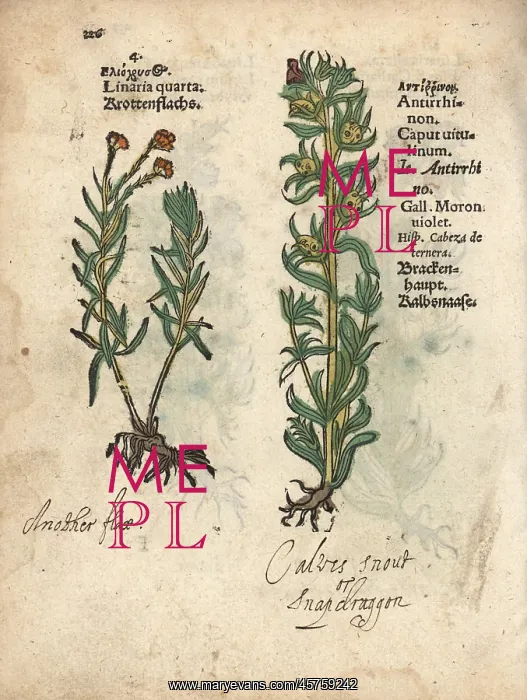 226
4.
Ελιόχρυσ☉.
Linaria quarta.
Krottenflachs.
Αντίῤῥινον.
Antirrhi-
non.
Caput uitu-
linum.
Je Antirrhi
no.
Gall. Moron
uiolet.
Hisp. Cabeza de
ternera.
Bracken-
haupt.
Kalbsnaase.
ME
PL
ME
PL
Another flax.
Calves snout
or
Snapdraggon
www.maryevans.com/45759242